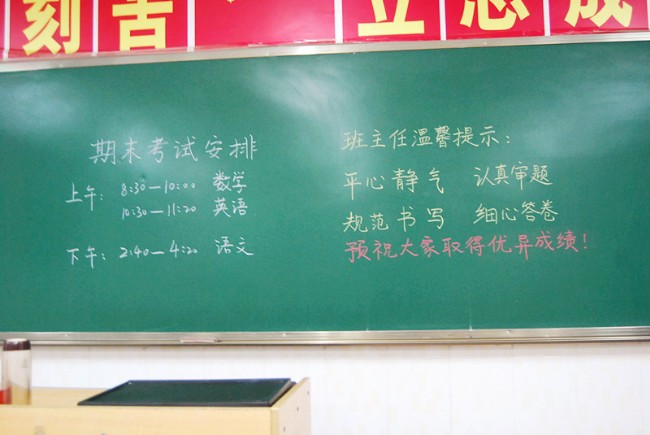 刻苦 立志成
期末考试安排
上午: 8:30—10:00 数学
10:30—11:20 英语
下午: 2:40—4:20 语文
班主任温馨提示:
平心静气 认真审题
规范书写 细心答卷
预祝大家取得优异成绩!